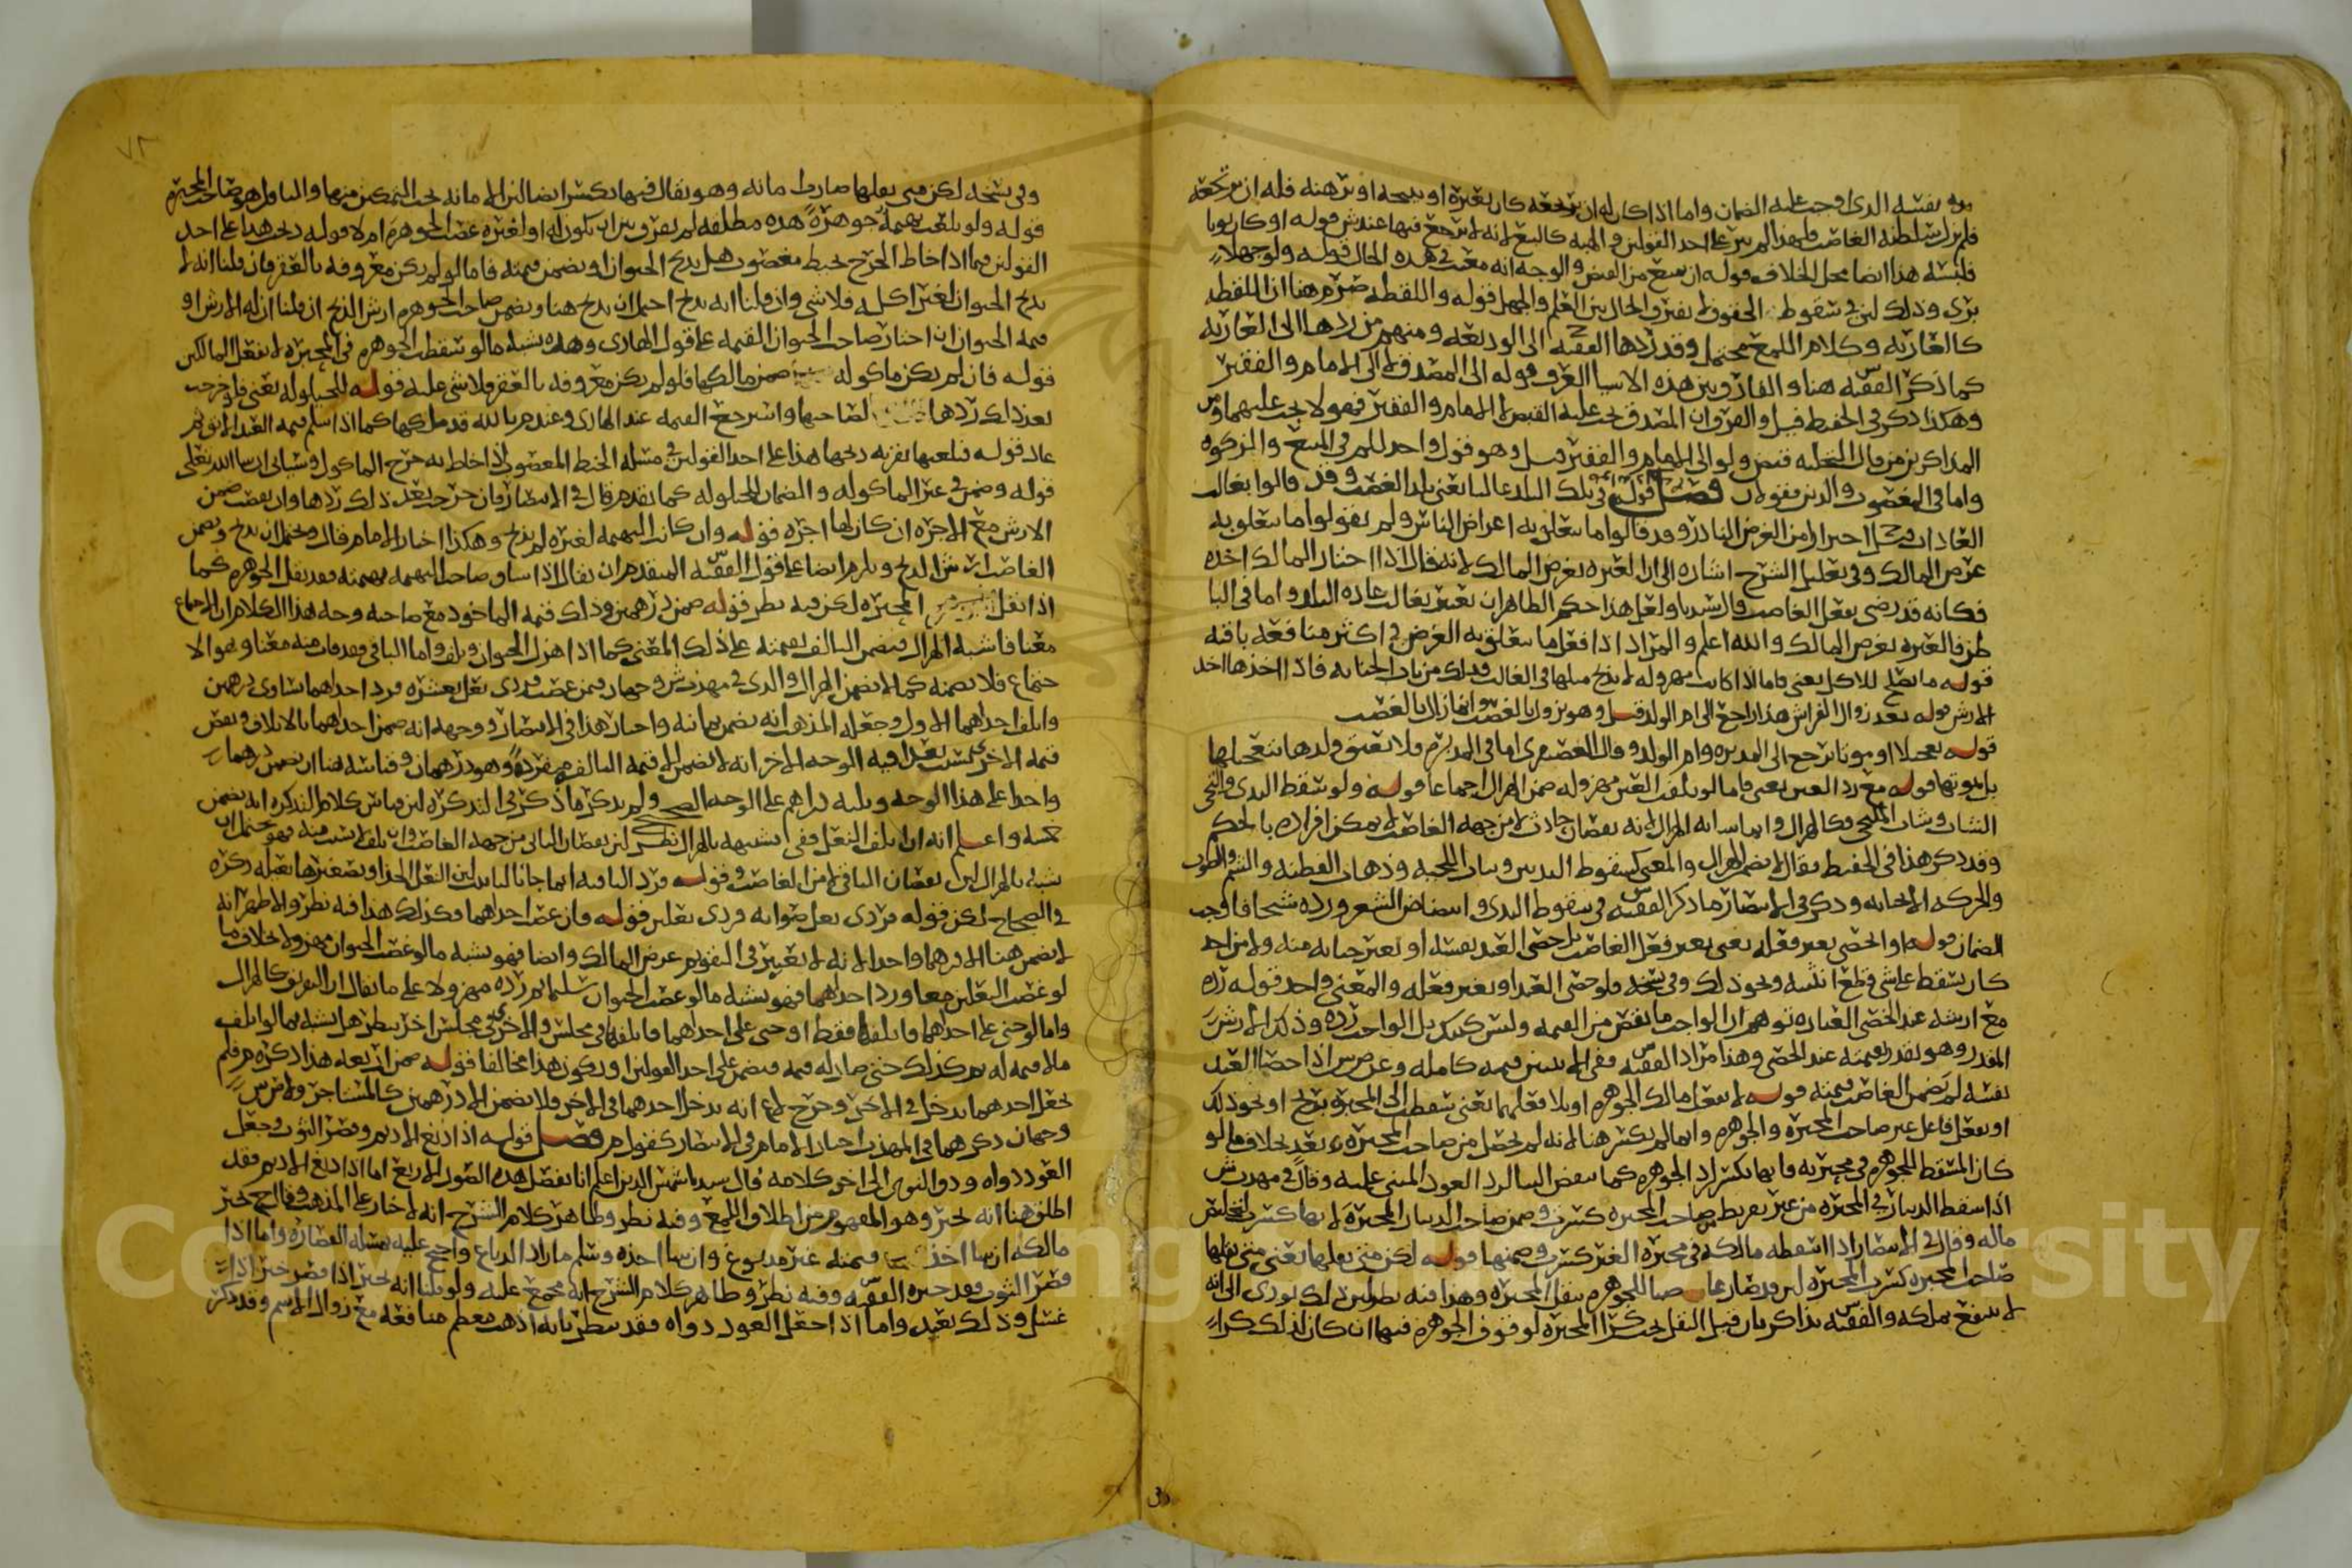 نفسه الذي اوجب عليه الضمان واما اذا كان له ان يرتجعه كان يعيره او يبيحه او يرهنه فله ان يرتجعه
فلم يزل سلطنة الغاصب ولهذا لم يبر على احد القولين والهبه كالبيع لانه لا يرجع فيها عندش قوله او كان ثوبا
فلبسه هذا ايضا محل الخلاف قوله ان يبيع من الغير والوجه انه مغب في هذه الحال قوله ولو جهلا
برى وذلك لان في سقوط الحقوق لا يفترق الحال بين العلم والجهل قوله واللقطه ضرم هنا ان اللقطه
كالعاريه وكلام اللمع محتمل وقد ردها الفقيه ح الى الوديعه ومنهم من ردها الى العاريه
كما ذكر الفقيه س هنا والفارق بين هذه الاشيا العرف قوله الى المصدق لا الى الامام والفقير
وهكذا ذكر في الحفيظ قيل والفرق ان المصدق يجب عليه القبض لا الامام والفقير فهو لا يجب عليهما ومن
المذاكرين من قال التخليه قبض ولو الى الامام والفقير وهو قول واحد للم في المبيع والزكوه
واما في المغصوب والدين فقولان فصل قوله في تلك البلد غالبا يعني بلد الغصب وقد قالوا بغالب
العادات احترازا من الغرض النادر وقد قالوا ما يتعلق به اعراض الناس ولم يقولوا ما يتعلق به
غرض المالك وفي تعليل الشرح اشاره الى ان العبره بغرض المالك لانه قال اذا اختار المالك اخذه
فكانه قد رضى بفعل الغاصب قال سيدنا ولعل هذا حكم الطاهر ان يعتبر بغالب عاده البلد واما في البا
طن فالعبره بغرض المالك والله اعلم والمراد اذا فعل ما يتعلق به الغرض في اكثر منافعه باقيه
قوله ما يصلح للاكل يعني فاما اذا كانت مهزوله لا يذبح مثلها في الغالب فذلك من باب الجنايه فاذا اخذها اخذ
الارش قوله بعد زوال الفراش هذا راجع الى ام الولد قيل وهو يزول بالغصب وانما زال بالغصب
قوله معجلا او موتا يرجع الى المدبره وام الولد وقال الغضنفري اما في المدبره فلا تعتق ولدها بتعجيلها
بل بموتها قوله مع رد العين يعني فاما لو تلفت العين مهزوله ضمن الهزال اجماعا قوله ولو سقط الثدي والتحى
الشاب وشاب الملتحي فكالهزال وانما شابه الهزال لانه نقصان حادث لا من جهه الغاصب لا يمكن افراده بالحكم
وقد ذكر هذا في الحفيظ فقال لا يضمن الهزال والمعنى كسقوط الثديين وبيان اللحيه وذهاب الفطنه والشم والصوت
والحركه لا الجنايه وذكر في الانتصار ما ذكر الفقيه س في سقوط الثدي وابيضاض الشعر ورده شيخا فاوجب
الضمان قوله او الخصي بغير فعله يعني بغير فعل الغاصب بل خصى العبد نفسه او بغير جنايه منه ولا من احد
كان يسقط على شي فقطع انثييه ونحو ذلك وفي نسخه فلو خصى العبد او بغير فعله والمعنى واحد قوله رده
مع ارشه عبد الخصي العباره توهم ان الواجب ما نقص من القيمه وليس كذلك بل الواجب رده وذلك الارش
المقدر وهو بقدر قيمته عند الخصي وهذا مراد الفقيه س ففي الانثيين قيمه كامله وعن ص ش اذا خصا العبد
نفسه لم يضمن الغاصب قيمته قوله لا بفعل مالك الجوهره او بلا فعلهما يعني سقطت الى المحبره بريح او نحو ذلك
او بفعل فاعل غير صاحب المحبره والجوهره وانما لم يكسر هنا لانه لم يحصل من صاحب المحبره تعد بخلاف ما لو
كان المسقط للجوهره في محبرته فانها تكسر لرد الجوهره كما ينقض البنا لرد العود المبني عليه وقال في مهذب ش
اذا سقط الدينار في المحبره من غير تفريط صاحب المحبره كسرت وضمن صاحب الدينار المحبره لانها كسرت لتخليص
ماله وقال في الانتصار اذا اسقطه مالكه في محبره الغير كسرت وضمنها قوله لكن متى نقلها يعني متى نقلها
صاحب المحبره كسرت المحبره لان قد صار غاصبا للجوهره بنقل المحبره وهذا فيه نظر لان ذلك يودي الى انه
لا ينتفع بملكه والفقيه س يذاكر بان قبل النقل يجب كرا المحبره لوقوف الجوهره فيها ان كان لذلك كراء
٧٢
وفي نسخه لكن متى نقلها صارت امانه وهو يقال فيها يكسر ايضا لان الامانه يجب التمكين منها والناقل هو صاحب المحبره
قوله ولو بلعت بهيمة جوهرة هذه مطلقه لم يفرق بين ان يكون له او لغيره غصب الجوهره ام لا قوله ذبحت هذا على احد
القولين فيما اذا خاط الجرح بخيط مغصوب هل يذبح الحيوان او يضمن قيمته فاما لو لم يكن معروفه بالعقر فان قلنا انه لا
يذبح الحيوان لغير اكله فلا شي وان قلنا انه يذبح احتمل ان يذبح هنا ويضمن صاحب الجوهره ارش الذبح ان قلنا ان له الارش او
قيمه الحيوان ان اختار صاحب الحيوان القيمه على قول الهادي وهذه تشبه ما لو سقطت الجوهره في المحبره لا بفعل المالكين
قوله فان لم يكن ماكوله ضمن مالكها فلو لم يكن معروفه بالعقر فلا شي عليه قوله للحيلوله يعني فلو خرجت
بعد ذلك ردها لصاحبها واسترجع القيمه عند الهادي وعند م بالله قد ملكها كما اذا سلم قيمه العبد الابق ثم
عاد قوله فبلعتها بقره ذبحها هذا على احد القولين في مسله الخيط المغصوب اذا خاط به جرح الماكول وسياتي ان شا الله تعالى
قوله وضمن في غير الماكوله والضمان للحيلوله كما تقدم قال في الانتصار فان خرجت بعد ذلك ردها وان نقصت ضمن
الارش مع الاجره ان كان لها اجره قوله وان كانت البهيمه لغيره لم تذبح وهكذا اختار الامام قال ويحتمل ان يذبح ويضمن
الغاصب ارش الذبح ويلزم ايضا على قول الفقيه س المتقدم ان يقال اذا ساوى صاحب البهيمه بهيمته فقد نقل الجوهره كما
اذا نقل المحبره لكن فيه نظر قوله ضمن درهمين وذلك قيمه الماخوذ مع صاحبه وحه هذا الكلام ان الاجتماع
معنا فاشبه الهزال فيضمن التالف بقيمته على ذلك المعنى كما اذا هزل الحيوان وتلف واما الباقي فقد فات منه معنا وهو الا
جتماع فلا يضمنه كما لا يضمن الهزال والذي في مهذب ش وجهان فيمن غصب فردي نعل بعشره فرد احدهما يساوي درهمين
واتلف احدهما الاول وجعله المذهب انه يضمن ثمانيه واختار هذا في الانتصار ووجهه انه ضمن احدهما بالاتلاف ونقص
قيمه الاخرى بسبب تعديه الوجه الاخر انه لا يضمن الا قيمه التالف مفرده وهو درهمان وقياسه هنا ان يضمن درهما
واحدا على هذا الوجه وثلثه دراهم على الوجه الصحيح ولم يذكر ما ذكر في التذكره لان قياس كلام التذكره انه يضمن
خمسه واعلم انه ان تلف النعل ففي تشبيهه بالهزال نظر لان نقصان الثاني من جهه الغاصب وان تلف بسبب منه فهو يحتمل ان
يشبه بالهزال لان نقصان الباقي لا من الغاصب قوله فرد الباقيه انما جا بالتانيث لان النعل الحذا وتصغيرها نعيله ذكره
في الصحاح لكن قوله فردي نعل صوابه فردي نعلين قوله فان غصب احدهما فكذلك هذا فيه نظر والاظهر انه
لا يضمن هنا الا درهما واحدا لانه لا تغيير في التقويم عرض المالك وايضا فهو يشبه ما لو غصب الحيوان مهزولا بخلاف ما
لو غصب النعلين معا ورد احدهما فهو يشبه ما لو غصب الحيوان سليما ثم رده مهزولا على ما يقال ان التفريق كالهزال
واما لو جنى على احدهما فاتلفها فقط او جنى على احدهما فاتلفها في مجلس والاخرى في مجلس اخر ينظر هل يشبه بما لو اتلف
ما لا قيمه له ثم كذلك حتى صار له قيمه فيضمن على احد القولين او يكون هذا مخالفا قوله ضمن ازيد له هذا ذكره م فلم
يجعل احدهما يدخل في الاخر وخرج لاع انه يدخل احدهما في الاخر فلا يضمن الا درهمين كالمستاجر ولص ش
وجهان ذكرهما في المهذب اختار الامام في الانتصار كقول م فصل قوله اذا دبغ الاديم وقصر الثوب وجعل
العود دواه ودق النوى الى اخر كلامه قال سيدنا شمس الدين اعلم انا نفصل هذه الصور الاربع اما اذا دبغ الاديم فقد
اطلق هنا انه يخير وهو المفهوم من اطلاق اللمع وفيه نظر وظاهر كلام الشرح انه لا خيار على المذهب وقال ح يخير
مالكه ان شا اخذ قيمته غير مدبوغ وان شا اخذه وسلم ما زاد الدباغ واحتج عليه بمسله القصاره واما اذا
قصر الثوب فقد خيره الفقيه س وفيه نظر وظاهر كلام الشرح انه مجمع عليه ولو قلنا انه يخير اذا قصر خير اذا
غسل وذلك بعيد واما اذا جعل العود دواه فقد ينظر بانه اذهب معظم منافعه مع زوال الاسم وقد ذكر